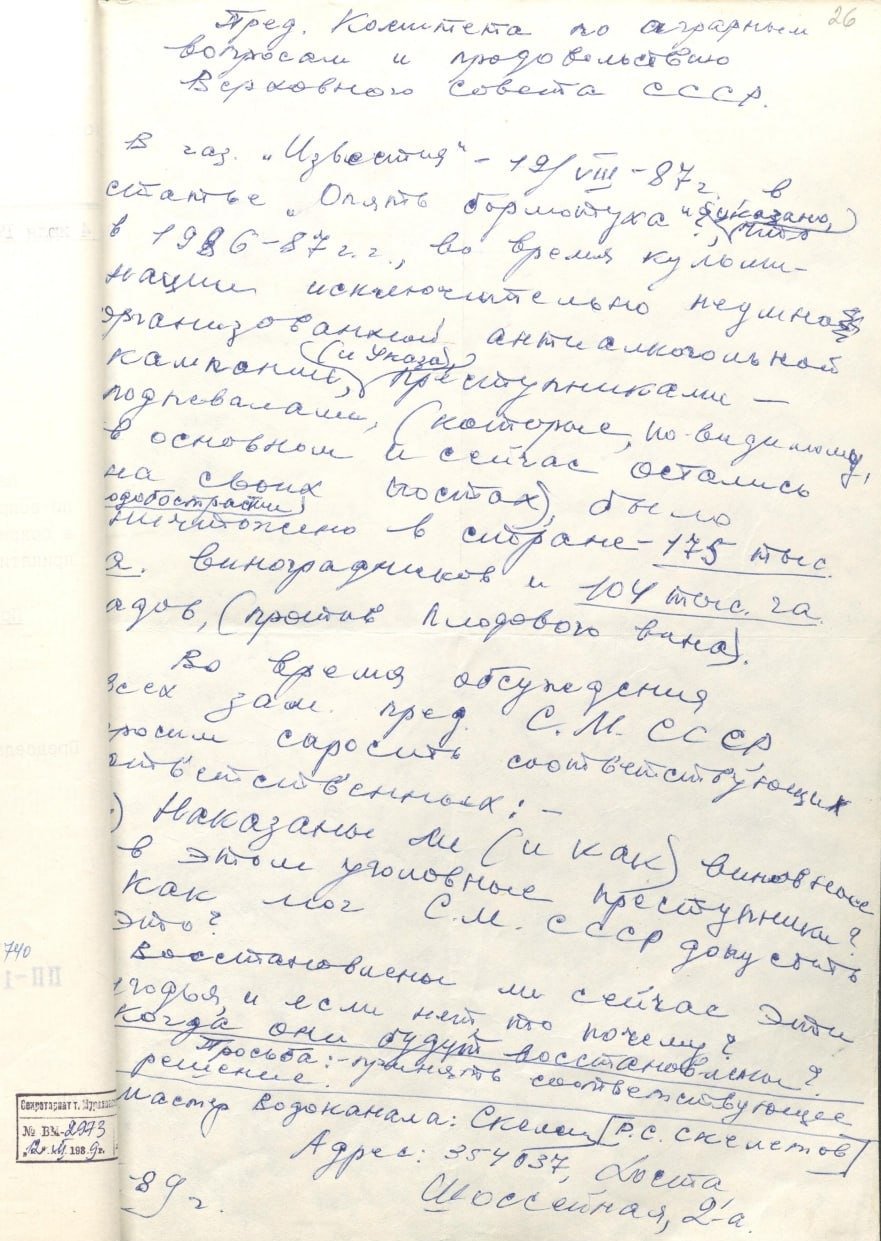 26
Пред. Комитета по аграрным
вопросам и продовольствию
Верховного совета СССР.
В газ. „Известия“ - 19/VIII - 87 г. в
статье „Опять бормотуха“ указано, что
в 1986-87 г.г., во время кульми-
нации исключительно неумно
организованной антиалкогольной
кампании, (и Указа) преступниками -
подпевалами, (которые, по-видимому,
в основном и сейчас остались
на своих постах), было
подобострастно
ничтожено в стране - 175 тыс.
а. виноградников и 104 тыс. га.
адов, (против плодового вина).
Во время обсуждения
всех зам. пред. С.М. СССР,
просим спросить соответствующих
ответственных: -
) Наказаны ли (и как) виновные
в этом уголовные преступники?
Как мог С.М. СССР допустить
это?
Восстановлены ли сейчас эти
угодья, и если нет, то почему?
Когда они будут восстановлены?
Просьба: - принять соответствующее
решение.
Мастер водоканала: [Р.С. Скелетов]
Адрес: 354037, Хоста
Шоссейная, 2-а.
89 г.
740
ПП-1
Секретариат т.
№ ВМ-2973
"12" VII 1989 г.